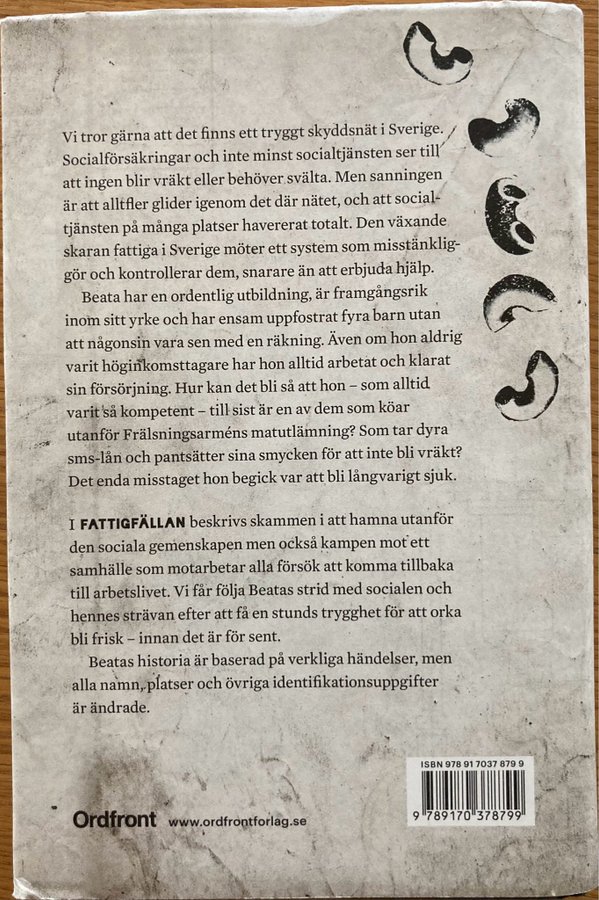 Vi tror gärna att det finns ett tryggt skyddsnät i Sverige.
Socialförsäkringar och inte minst socialtjänsten ser till
att ingen blir vräkt eller behöver svälta. Men sanningen
är att alltfler glider igenom det där nätet, och att social-
tjänsten på många platser havererat totalt. Den växande
skaran fattiga i Sverige möter ett system som misstänklig-
gör och kontrollerar dem, snarare än att erbjuda hjälp.
Beata har en ordentlig utbildning, är framgångsrik
inom sitt yrke och har ensam uppfostrat fyra barn utan
att någonsin vara sen med en räkning. Även om hon aldrig
varit höginkomsttagare har hon alltid arbetat och klarat
sin försörjning. Hur kan det bli så att hon – som alltid
varit så kompetent – till sist är en av dem som köar
utanför Frälsningsarméns matutlämning? Som tar dyra
sms-lån och pantsätter sina smycken för att inte bli vräkt?
Det enda misstaget hon begick var att bli långvarigt sjuk.
I FATTIGFÄLLAN beskrivs skammen i att hamna utanför
den sociala gemenskapen men också kampen mot ett
samhälle som motarbetar alla försök att komma tillbaka
till arbetslivet. Vi får följa Beatas strid med socialen och
hennes strävan efter att få en stunds trygghet för att orka
bli frisk – innan det är för sent.
Beatas historia är baserad på verkliga händelser, men
alla namn, platser och övriga identifikationsuppgifter
är ändrade.
ISBN 978 91 7037 879 9
9 789170 378799
Ordfront www.ordfrontforlag.se